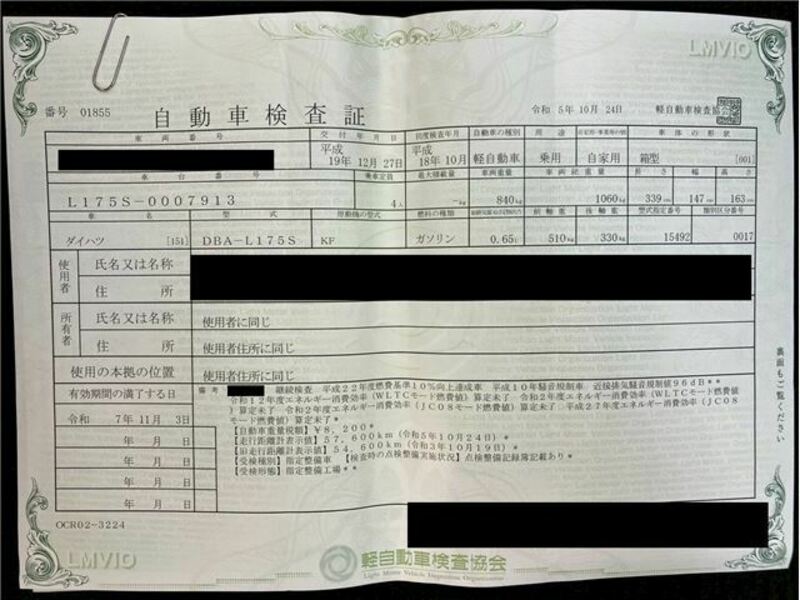 LMVIO
番号 01855
自動車検査証
令和 5年10月24日 軽自動車検査協会
車両番号 交付年月日 初度検査年月 自動車の種別 用途 自家用・事業用の別 車体の形状
平成 19年12月27日 平成 18年10月 軽自動車 乗用 自家用 箱型 [001]
車台番号 乗車定員 最大積載量 車両重量 車両総重量 長さ 幅 高さ
L175S-0007913 4人 -kg 840kg 1060kg 339cm 147cm 163cm
車名 型式 原動機の型式 燃料の種類 前軸重 後軸重 型式指定番号 類別区分番号
ダイハツ [151] DBA-L175S KF ガソリン 0.65L 510kg 330kg 15492 0017
使用者 氏名又は名称
住所
所有者 氏名又は名称 使用者に同じ
住所 使用者住所に同じ
使用の本拠の位置 使用者住所に同じ
有効期間の満了する日
令和 7年11月 3日
年 月 日
年 月 日
年 月 日
年 月 日
備考 継続検査 平成22年度燃費基準10%向上達成車 平成10年騒音規制車 近接排気騒音規制値96dB**
令和12年度エネルギー消費効率(WLTCモード燃費値)算定未了 令和2年度エネルギー消費効率(WLTCモード燃費値
)算定未了 令和2年度エネルギー消費効率(JC08モード燃費値)算定未了 平成27年度エネルギー消費効率(JC08
モード燃費値)算定未了*
[自動車重量税額]¥8,200*
[走行距離計表示値]57,600km(令和5年10月24日)*
[旧走行距離計表示値]54,600km(令和3年10月19日)*
[受検種別]指定整備車 [検査時の点検整備実施状況]点検整備記録簿記載あり*
[受検形態]指定整備工場**
裏面もご覧ください
OCR02-3224
LMVIO
軽自動車検査協会
Light Motor Vehicle Inspection Organization